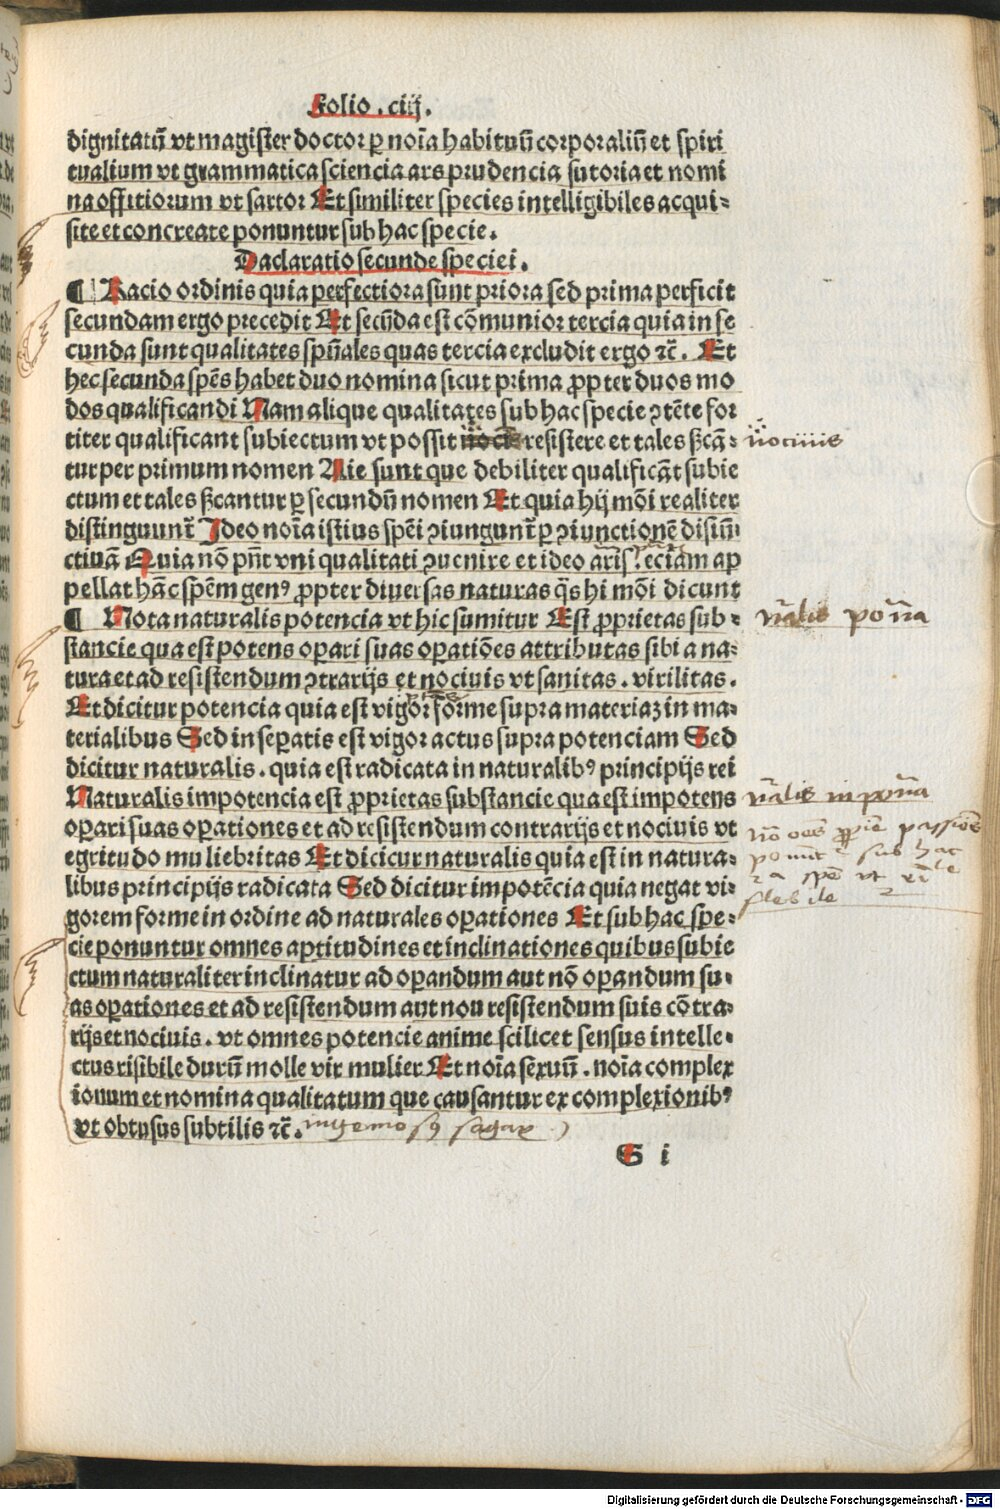 Folio .ciij.
dignitatū vt magister doctor ꝑ noīa habituū corporaliū et spiri
tualium vt grammatica sciencia ars prudencia sutoria et nomi
na offitiorum vt sartor Et similiter species intelligibiles acqui⸗
site et concreate ponuntur sub hac specie.
Daclaratio secunde speciei.
¶ Racio ordinis quia perfectiora sunt priora sed prima perficit
secundam ergo precedit Et secūda est cōmunior tercia quia in se
cunda sunt qualitates spūales quas tercia excludit ergo ⁊c̄. Et
hec secunda spēs habet duo nomina sicut prima ꝓpter duos mo
dos qualificandi Nam alique qualitates sub hac specie ꝯtēte for
titer qualificant subiectum vt possit nociuis resistere et tales ſꝫcā⸗
nociuis
tur per primum nomen Alie sunt que debiliter qualificāt subie
ctum et tales ſꝫcantur ꝑ secundū nomen Et quia hij mōi realiter
distinguunt̄ Ideo noīa istius spēi ꝯiungunt̄ ꝑ ꝯiunctionē disiū
ctiuā Quia nō pn̄t vni qualitati ꝯuenire et ideo aris. eciam ap
pellat hāc spēm genꝰ ꝓpter diuersas naturas q̄s hi mōi dicunt
¶ Nota naturalis potencia vt hic sumitur Est ꝓprietas sub⸗
nālis po͞na
stancie qua est potens oꝑari suas oꝑatiōes attributas sibi a na⸗
tura et ad resistendum ꝯtrarijs et nociuis vt sanitas. virilitas.
Et dicitur potencia quia est vigor forme supra materiaꝫ in ma⸗
terialibus Sed in seꝑatis est vigor actus supra potenciam Sed
dicitur naturalis. quia est radicata in naturalibꝰ principijs rei
Naturalis impotencia est ꝓprietas substancie qua est impotens
nālis inpo͞na
oꝑari suas oꝑationes et ad resistendum contrarijs et nociuis vt
egritudo muliebritas Et dicicur naturalis quia est in natura⸗
libus principijs radicata Sed dicitur impotēcia quia negat vi⸗
nō oēs ꝓprie passiōes
sub hac
spē vt
flebile
gorem forme in ordine ad naturales oꝑationes Et sub hac spe⸗
cie ponuntur omnes aptitudines et inclinationes quibus subie
ctum naturaliter inclinatur ad oꝑandum aut nō oꝑandum su⸗
as oꝑationes et ad resistendum aut nou resistendum suis cōtra⸗
rijs et nociuis. vt omnes potencie anime scilicet sensus intelle⸗
ctus risibile durū molle vir mulier Et noīa sexuū. noīa complex
ionum et nomina qualitatum que causantur ex complexionibꝰ
vt obtusus subtilis ⁊c̄. ingeniosꝰ sagax
S i
Digitalisierung gefördert durch die Deutsche Forschungsgemeinschaft - DFG